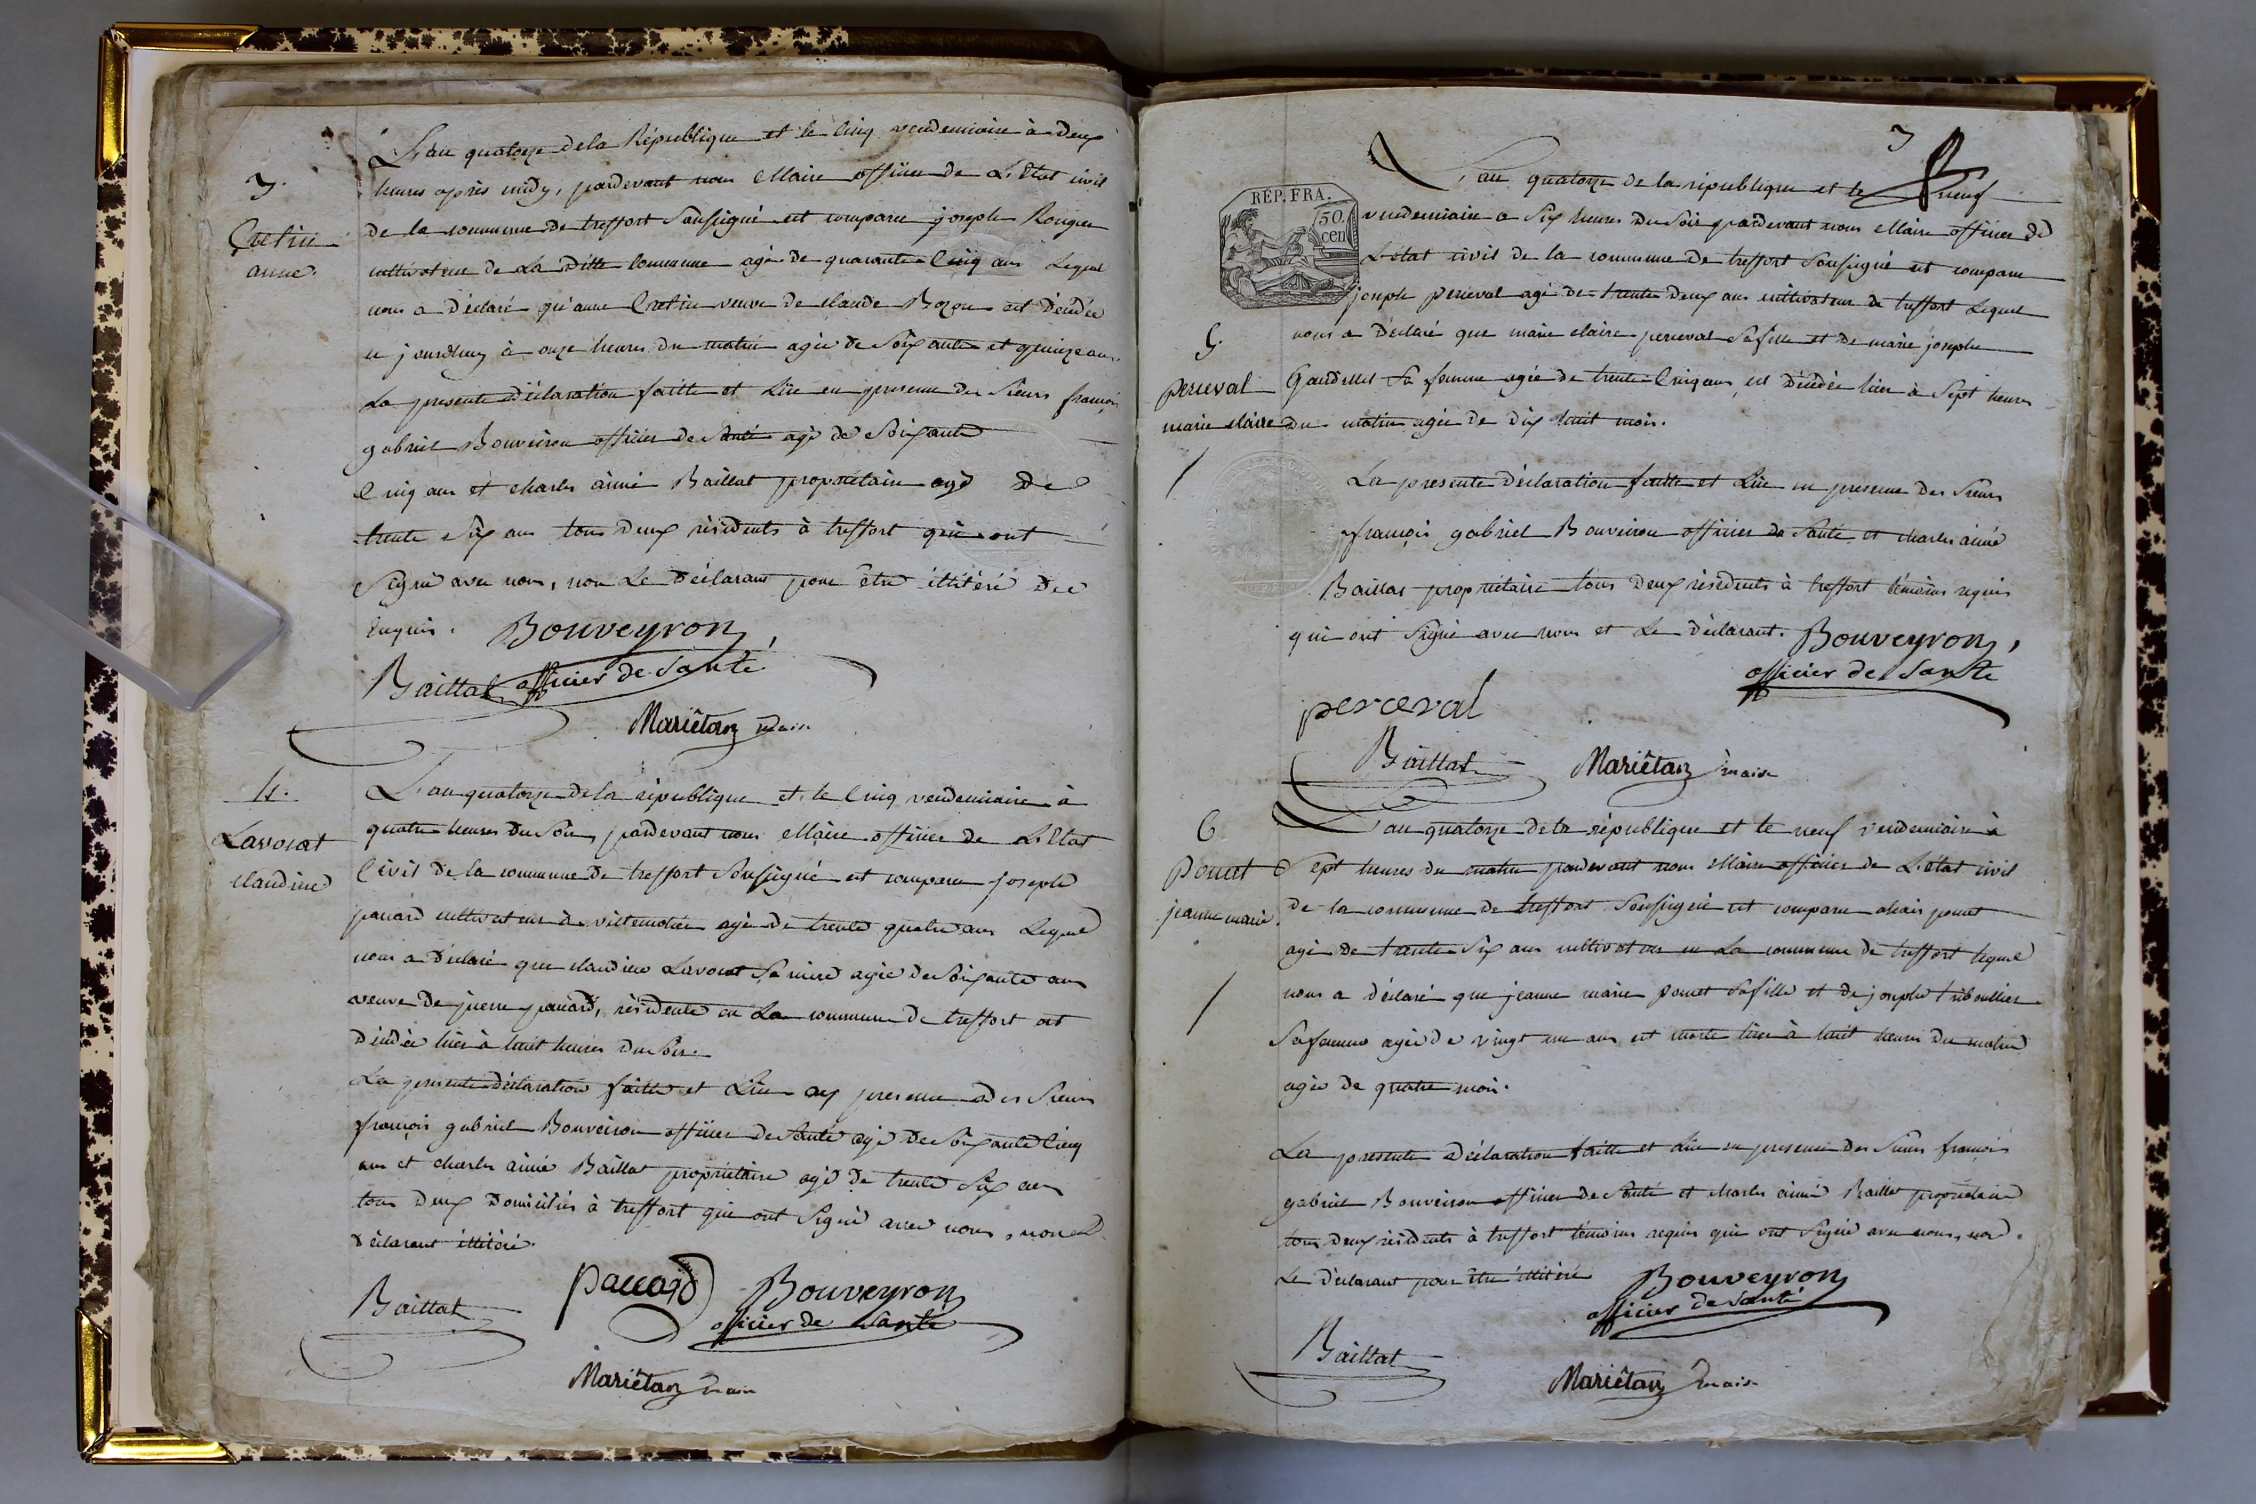 3.
Cretin
anne.
L'an quatorze de la République et le Cinq vendemiaire à deux
heures après midy, pardevant nous Maire officier de L'Etat civil
de la commune de treffort Soussigné est comparu joseph
cultivateur de La Ditte Commune agé de quarante Cinq ans Lequel
nous a déclaré qu'anne Cretin veuve de claude Bozon est Décédée
ce jourdhuy à onze heures du matin agée de Soixante et quinze ans.
La presente Déclaration faitte et Lüe en presence des Sieurs françois
gabriel Bouveiron officier de Santé agé de Soixante
Cinq ans et charles aimé Baillat propriétaire agé De
trente Six ans tous Deux résidents à treffort qui ont
Signé avec nous, non Le Déclarant pour être illitéré De ce
Enquis. Bouveyron,
Baillat officier de Santé
Mariétan maire
4.
Lavocat
claudine
L'an quatorze de la république et le Cinq vendemiaire à
quatre heures Du Soir, pardevant nous Maire officier de L'Etat
Civil De la commune De treffort Soussigné est comparu joseph
pacard cultivateur de agé De trente quatre ans Lequel
nous a Déclaré que claudine Lavocat Sa mere agée De Soixante ans
veuve De pierre pacard, résidente en La commune De treffort est
Décédée hier à huit heures Du Soir.
La presente Déclaration faitte et Lüe en presence Des Sieurs
françois gabriel Bouveiron officier De Santé agé De Soixante Cinq
ans et charles aimé Baillat propriétaire agé De trente Six ans
tous Deux Domiciliés à treffort qui ont Signé avec nous, non Le
Déclarant illitéré.
Baillat paccard Bouveyron
officier de Santé
Mariétan maire
3
RÉP. FRA.
50.
cen
L'an quatorze de la république et le neuf
vendemiaire a Six heures Du Soir pardevant nous Maire officier De
L'état civil de la commune De treffort Soussigné est comparu
joseph perceval agé de trente Deux ans cultivateur de treffort Lequel
5.
nous a Déclaré que marie claire perceval Sa fille et De marie josephe
perceval
marie claire
Sa femme agée de trente Cinq ans, est Décédée hier à Sept heures
du matin agée De Dix huit mois.
La presente Déclaration faitte et Lüe en presence Des Sieurs
françois gabriel Bouveiron officier de Santé et charles aimé
Baillat propriétaire tous Deux résidents à treffort témoins requis
qui ont Signé avec nous et Le Déclarant. Bouveyron,
officier de Santé
perceval
Baillat Mariétan maire
6
pomet
jeanne marie.
L'an quatorze De la république et le neuf vendemiaire à
Sept heures du matin pardevant nous Maire officier De L'état civil
De la commune De treffort Soussigné est comparu pomet
agé De trente Six ans cultivateur en La commune De treffort lequel
nous a déclaré que jeanne marie pomet Sa fille et De josephe triboullier
Sa femme agée De vingt un ans est morte hier à huit heures Du matin
agée De quatre mois.
La presente Déclaration faitte et Lüe en presence Des Sieurs françois
gabriel Bouveiron officier De Santé et charles aimé Baillat propriétaire
tous Deux résidents à treffort témoins requis qui ont Signé avec nous, non
Le Déclarant pour être illitéré Bouveyron
officier de Santé
Baillat
Mariétan maire